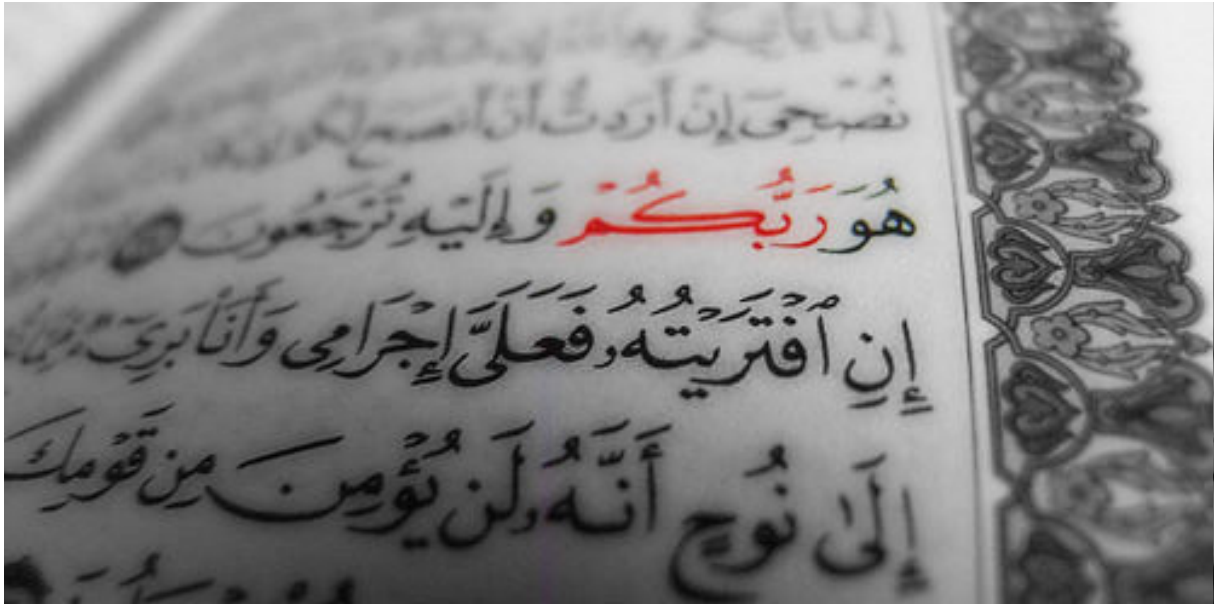 إنما يأتيكم به
نُصْحِىٓ إِنْ أَرَدتُّ أَنْ أَنصَحَ لَكُمْ
هُوَ رَبُّكُمْ وَإِلَيْهِ تُرْجَعُونَ
إِنِ ٱفْتَرَيْتُهُۥ فَعَلَىَّ إِجْرَامِى وَأَنَا۠ بَرِىٓءٌ
إِلَىٰ نُوحٍ أَنَّهُۥ لَن يُؤْمِنَ مِن قَوْمِكَ